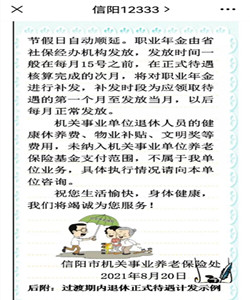 信阳12333 >
节假日自动顺延。职业年金由省
社保经办机构发放，发放时间一
般在每月15号之前，在正式待遇
核算完成的次月，将对职业年金
进行补发，补发时段为应领取待
遇的第一个月至发放当月，以后
每月正常发放。
机关事业单位退休人员的健
康休养费、物业补贴、文明奖等
费用，未纳入机关事业单位养老
保险基金支付范围，不属于我单
位业务，具体执行情况请向本单
位咨询。
祝您生活愉快，身体健康，
我们将竭诚为您服务！
信阳市机关事业养老保险处
2021年8月20日
后附：过渡期内退休正式待遇计发示例